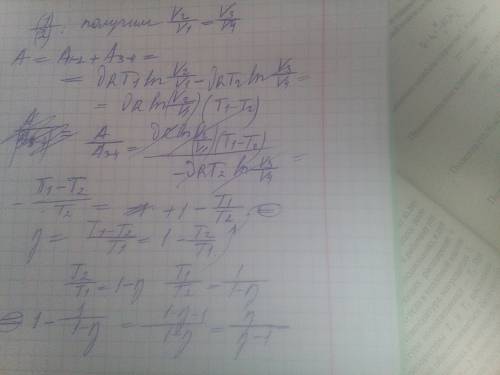 (1)/(2): получим V₂/V₁ = V₃/V₄
A = A₁₋₂ + A₃₋₄ =
= νRT₁ ln V₂/V₁ − νRT₂ ln V₃/V₄ =
= νR ln(V₂/V₁) (T₁−T₂)
A/A₃₋₄ = νR ln(V₂/V₁)(T₁−T₂) / −νRT₂ ln V₃/V₄ =
− (T₁−T₂)/T₂ = + 1 − T₁/T₂ =
η = (T₁−T₂)/T₁ = 1 − T₂/T₁
T₂/T₁ = 1−η T₁/T₂ = 1/(1−η)
= 1 − 1/(1−η) = (1−η−1)/(1−η) = η/(η−1)